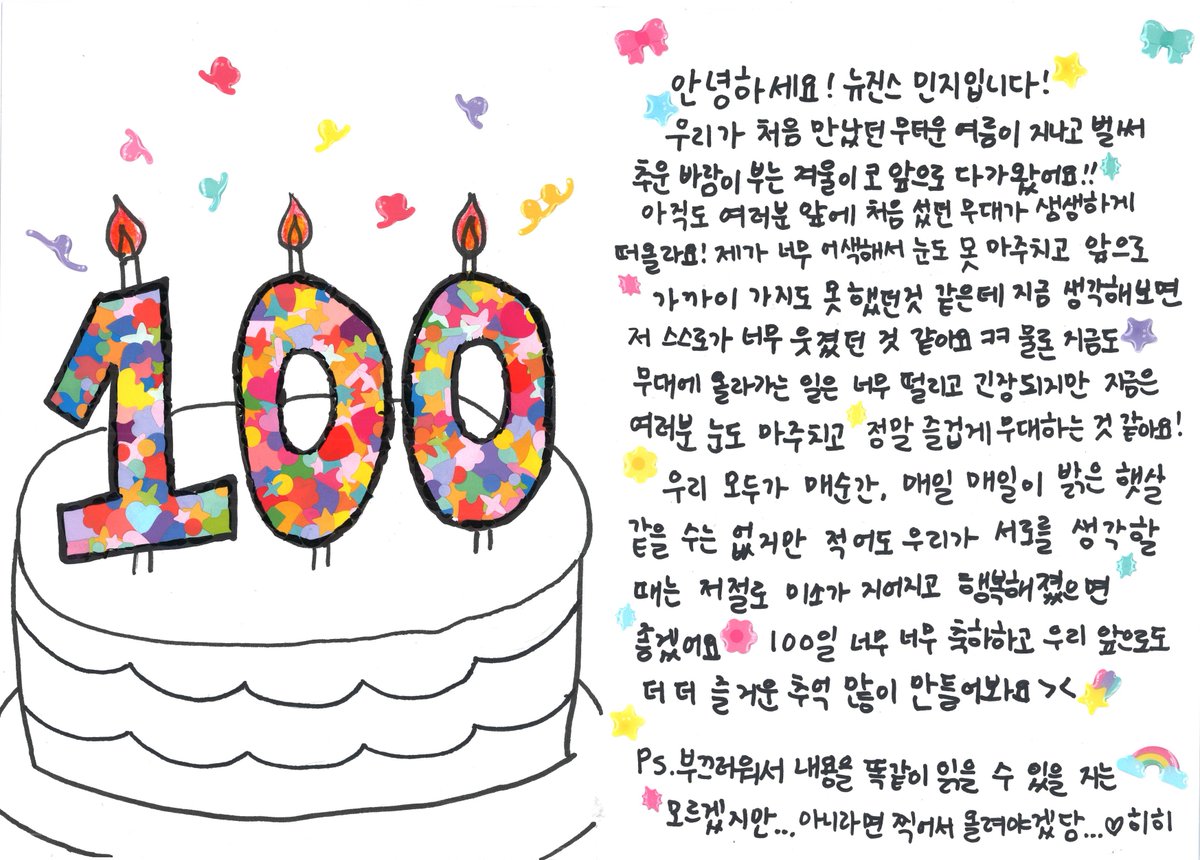 100
안녕하세요! 뉴진스 민지입니다!
우리가 처음 만났던 무더운 여름이 지나고 벌써
추운 바람이 부는 겨울이 코 앞으로 다가왔어요!!
아직도 여러분 앞에 처음 섰던 무대가 생생하게
떠올라요! 제가 너무 어색해서 눈도 못 마주치고 앞으로
가까이 가지도 못 했던것 같은데 지금 생각해보면
저 스스로가 너무 웃겼던 것 같아요 ㅋㅋ 물론 지금도
무대에 올라가는 일은 너무 떨리고 긴장되지만 지금은
여러분 눈도 마주치고 정말 즐겁게 무대하는 것 같아요!
우리 모두가 매순간, 매일 매일이 밝은 햇살
같을 수는 없지만 적어도 우리가 서로를 생각할
때는 저절로 미소가 지어지고 행복해졌으면
좋겠어요 100일 너무 너무 축하하고 우리 앞으로도
더 더 즐거운 추억 많이 만들어봐요 ><
Ps.부끄러워서 내용을 똑같이 읽을 수 있을 지는
모르겠지만... 아니라면 찍어서 올려야겠당...♡히히